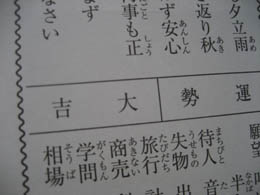 夕立雨
返り秋
ず安心
事も正
まず
なさい
運勢
大吉
願望
待人
失物
旅行
商売
学問
相場
半
音
出